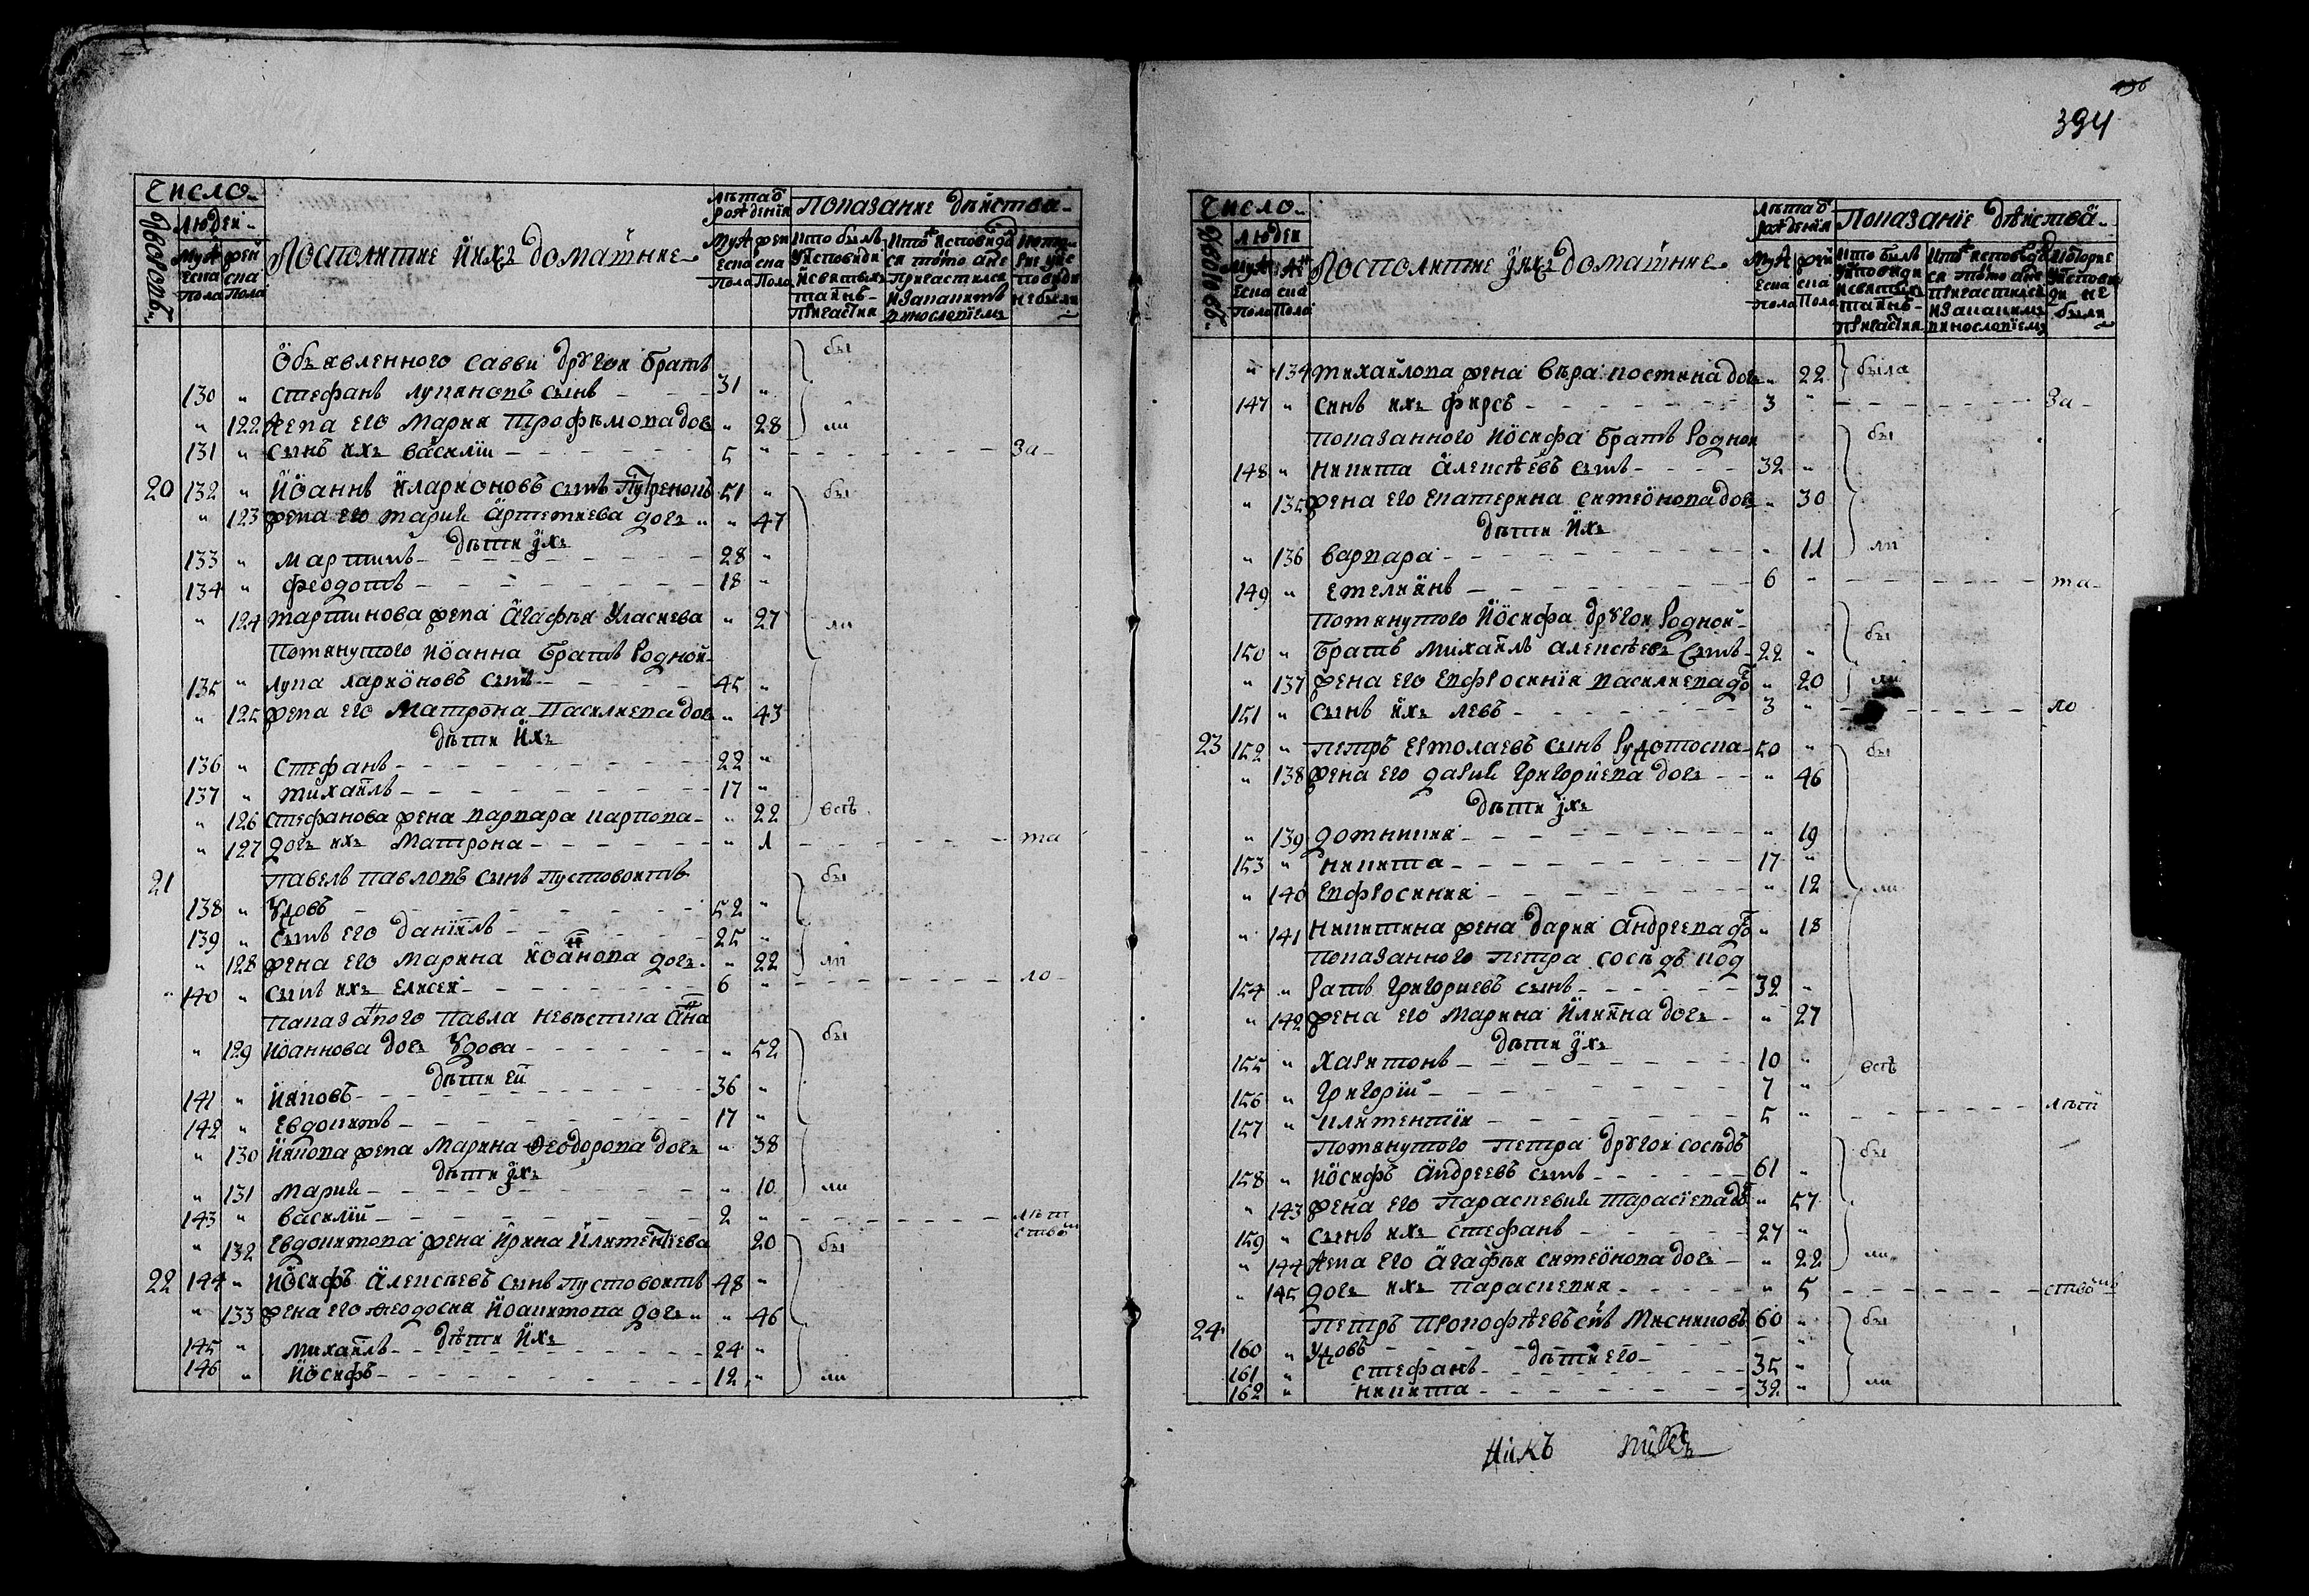 394
Число
Дворовъ
людей
Мужеска пола
женска пола
Посполитие ихъ домашние
лѣта ѿ рождения
Мужеска пола
женска пола
Показание дѣйства
кто былъ у исповѣди и святыхъ таинъ причастия
кто исповѣдался токмо а не причастился и за какимъ винословиемъ
которие у исповѣди не были
Объявленного Савви другои братъ бы
130 „ стефанъ лукяновъ сынъ 31 „
„ 122 жена его Мария трофѣмова доч „ 28 ли
131 „ сынъ ихъ василии 5 „ За
20 132 „ Иоаннъ иларионовъ сынъ 51 „ бы
„ 123 жена его мария артемиева доч „ „ 47
дѣти ихъ
133 „ мартинъ 28 „
134 „ феодотъ 18 „
„ 124 мартинова жена агафия Уласиева „ 27 ли
помянутого иоанна братъ родной
135 „ лука ларионовъ сынъ 45 „
„ 125 жена его Матрона василиева доч „ 43
дѣти ихъ
136 „ стефанъ 22 „
137 „ михаилъ 17 „
„ 126 стефанова жена варвара карпова „ 22 вст
„ 127 доч ихъ Матрона „ 1 ма
21 павелъ павловъ сынъ пустовоитъ бы
138 „ Удовъ 52 „
139 „ сынъ его данїилъ 25 „
„ 128 жена его Марина иоаннова доч „ 22 ли
140 „ сынъ ихъ елисеи 6 „ ло
Показаного павла невѣстка анна
„ 129 иоаннова доч Удова „ 52 бы
дѣти еи
141 „ иаковъ 36 „
142 „ евдокимъ 17 „
„ 130 иякова жена Марина Феодорова доч „ 38
дѣти ихъ
„ 131 мария „ 10 ли
143 „ василїй 2 „ лѣт
ством
„ 132 евдокимова жена ирина климентїева 20 бы
22 144 „ иосифъ алексѣевъ сынъ пустовоитъ 48 „
„ 133 жена его феодосия иоакимова доч „ „ 46
дѣти ихъ
145 „ михаилъ 24 „
146 „ иосифъ 12 „ ли
Число
Дворовъ
людеи
Мужеска пола
жен ска пола
Посполитие ихъ домашние
лѣта ѿ рождения
Мужеска пола
жен ска пола
Показанїе дѣиства
кто былъ у исповѣди и святыхъ таинъ причастия
кто исповѣдался токмо а не причастился и за какимъ винословїемъ
которие у исповѣди не были
„ 134 михаилова жена вѣра костина доч „ 22 была
147 „ синъ ихъ фирсъ 3 „ За
показанного иосифа братъ роднои бы
148 „ никита алексѣевъ сынъ 32 „
„ 135 жена его екатерина симеонова доч „ 30
дѣти ихъ
„ 136 варвара „ 11 ли
149 „ емелианъ 6 „ ма
помянутого иосифа другои роднои
150 „ братъ михаилъ алексѣевъ сынъ 22 „ бы
„ 137 жена его евфросинїя василиева до „ 20 ли
151 „ сынъ ихъ левъ 3 „ ло
23 152 „ петръ ермолаевъ сынъ 50 „ бы
„ 138 жена его дария григориева доч „ 46
дѣти ихъ
„ 139 домникия „ 19
153 „ никита 17 „
„ 140 евфросиния „ 12 ли
„ 141 никитина жена дария андреева до „ 18
показанного петра сосѣдъ код
154 „ ратъ григориевъ сынъ 32 „
„ 142 жена его марина илиина доч „ 27
дѣти ихъ
155 „ харитонъ 10 „ вст
156 „ григорїй 7 „
157 „ климентїи 5 „ лѣт
помянутого петра другои сосѣдъ бы
158 „ иосифъ андреевъ сынъ 61 „
„ 143 жена его параскевия тарасїева до „ 57
159 „ сынъ ихъ стефанъ 27 „
„ 144 жена его агафия симеонова доч „ 22 ли
„ 145 доч ихъ параскевия „ 5 ством
24 петръ прокофѣевъ снъ Мясниковъ 60 „ бы
160 „ Удовъ „
дѣти его
161 „ стефанъ 35 „
162 „ никита 32 „ ли